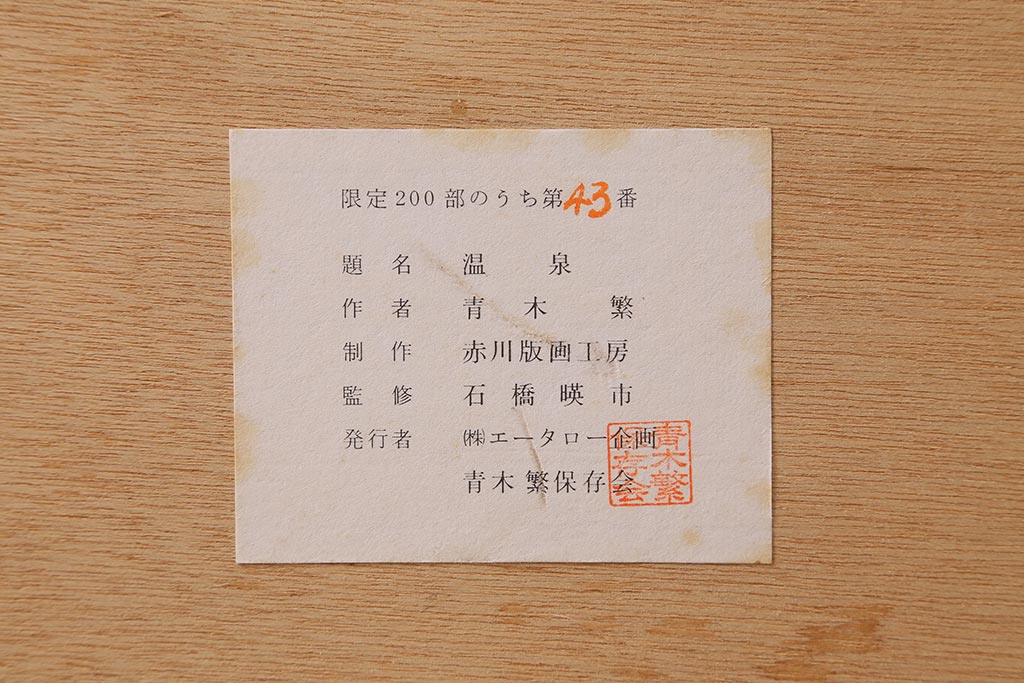 限定200部のうち第43番
題名 温泉
作者 青木繁
制作 赤川版画工房
監修 石橋暎市
発行者 ㈱エータロー企画
青木繁保存会
青木繁
保存会